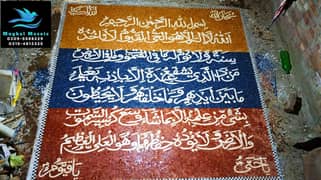 Mughal Mosaic
بسم الله الرحمن الرحيم
الله لا اله الا هو الحي القيوم لا تاخذه
سنة ولا نوم له ما في السموت وما في الارض
من ذا الذي يشفع عنده الا باذنه يعلم
ما بين ايديهم وما خلفهم ولا يحيطون
بشيء من علمه الا بما شاء وسع كرسيه السموت
والارض ولا يئوده حفظهما وهو العلي العظيم